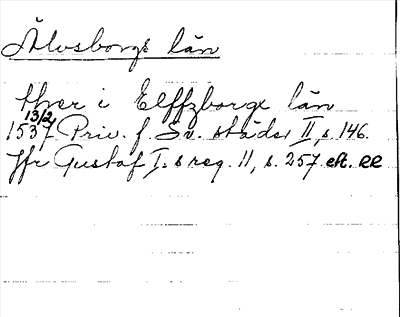 Älvsborgs län
thor i Elffzborgx län
13/2
1537 Priv. f. Sv. städer II, s. 146.
Jfr Gustaf I:s reg. 11, s. 257. eft. ee